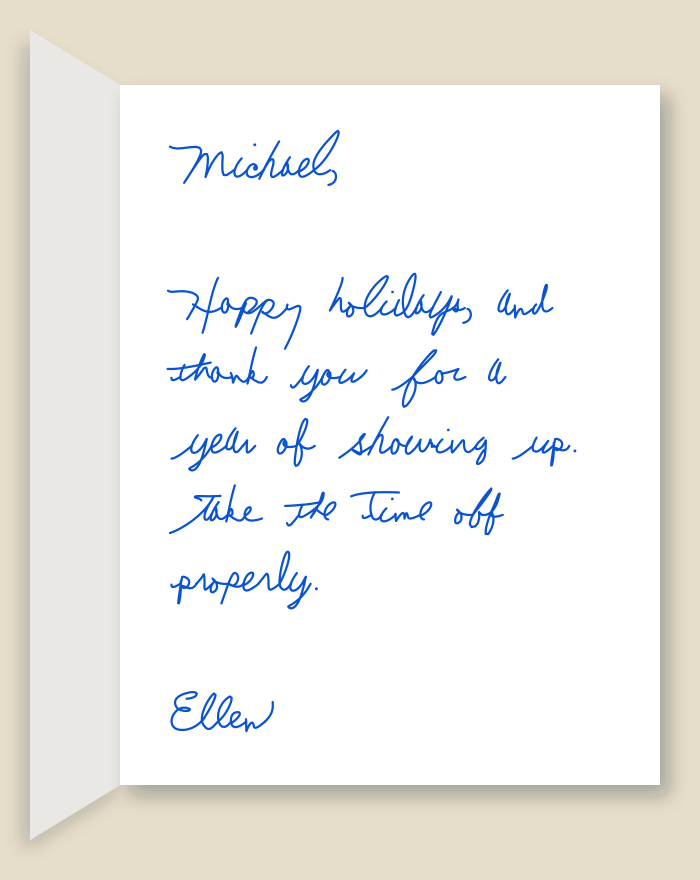 Michael,
Happy holidays, and
thank you for a
year of showing up.
Take the time off
properly.
Ellen